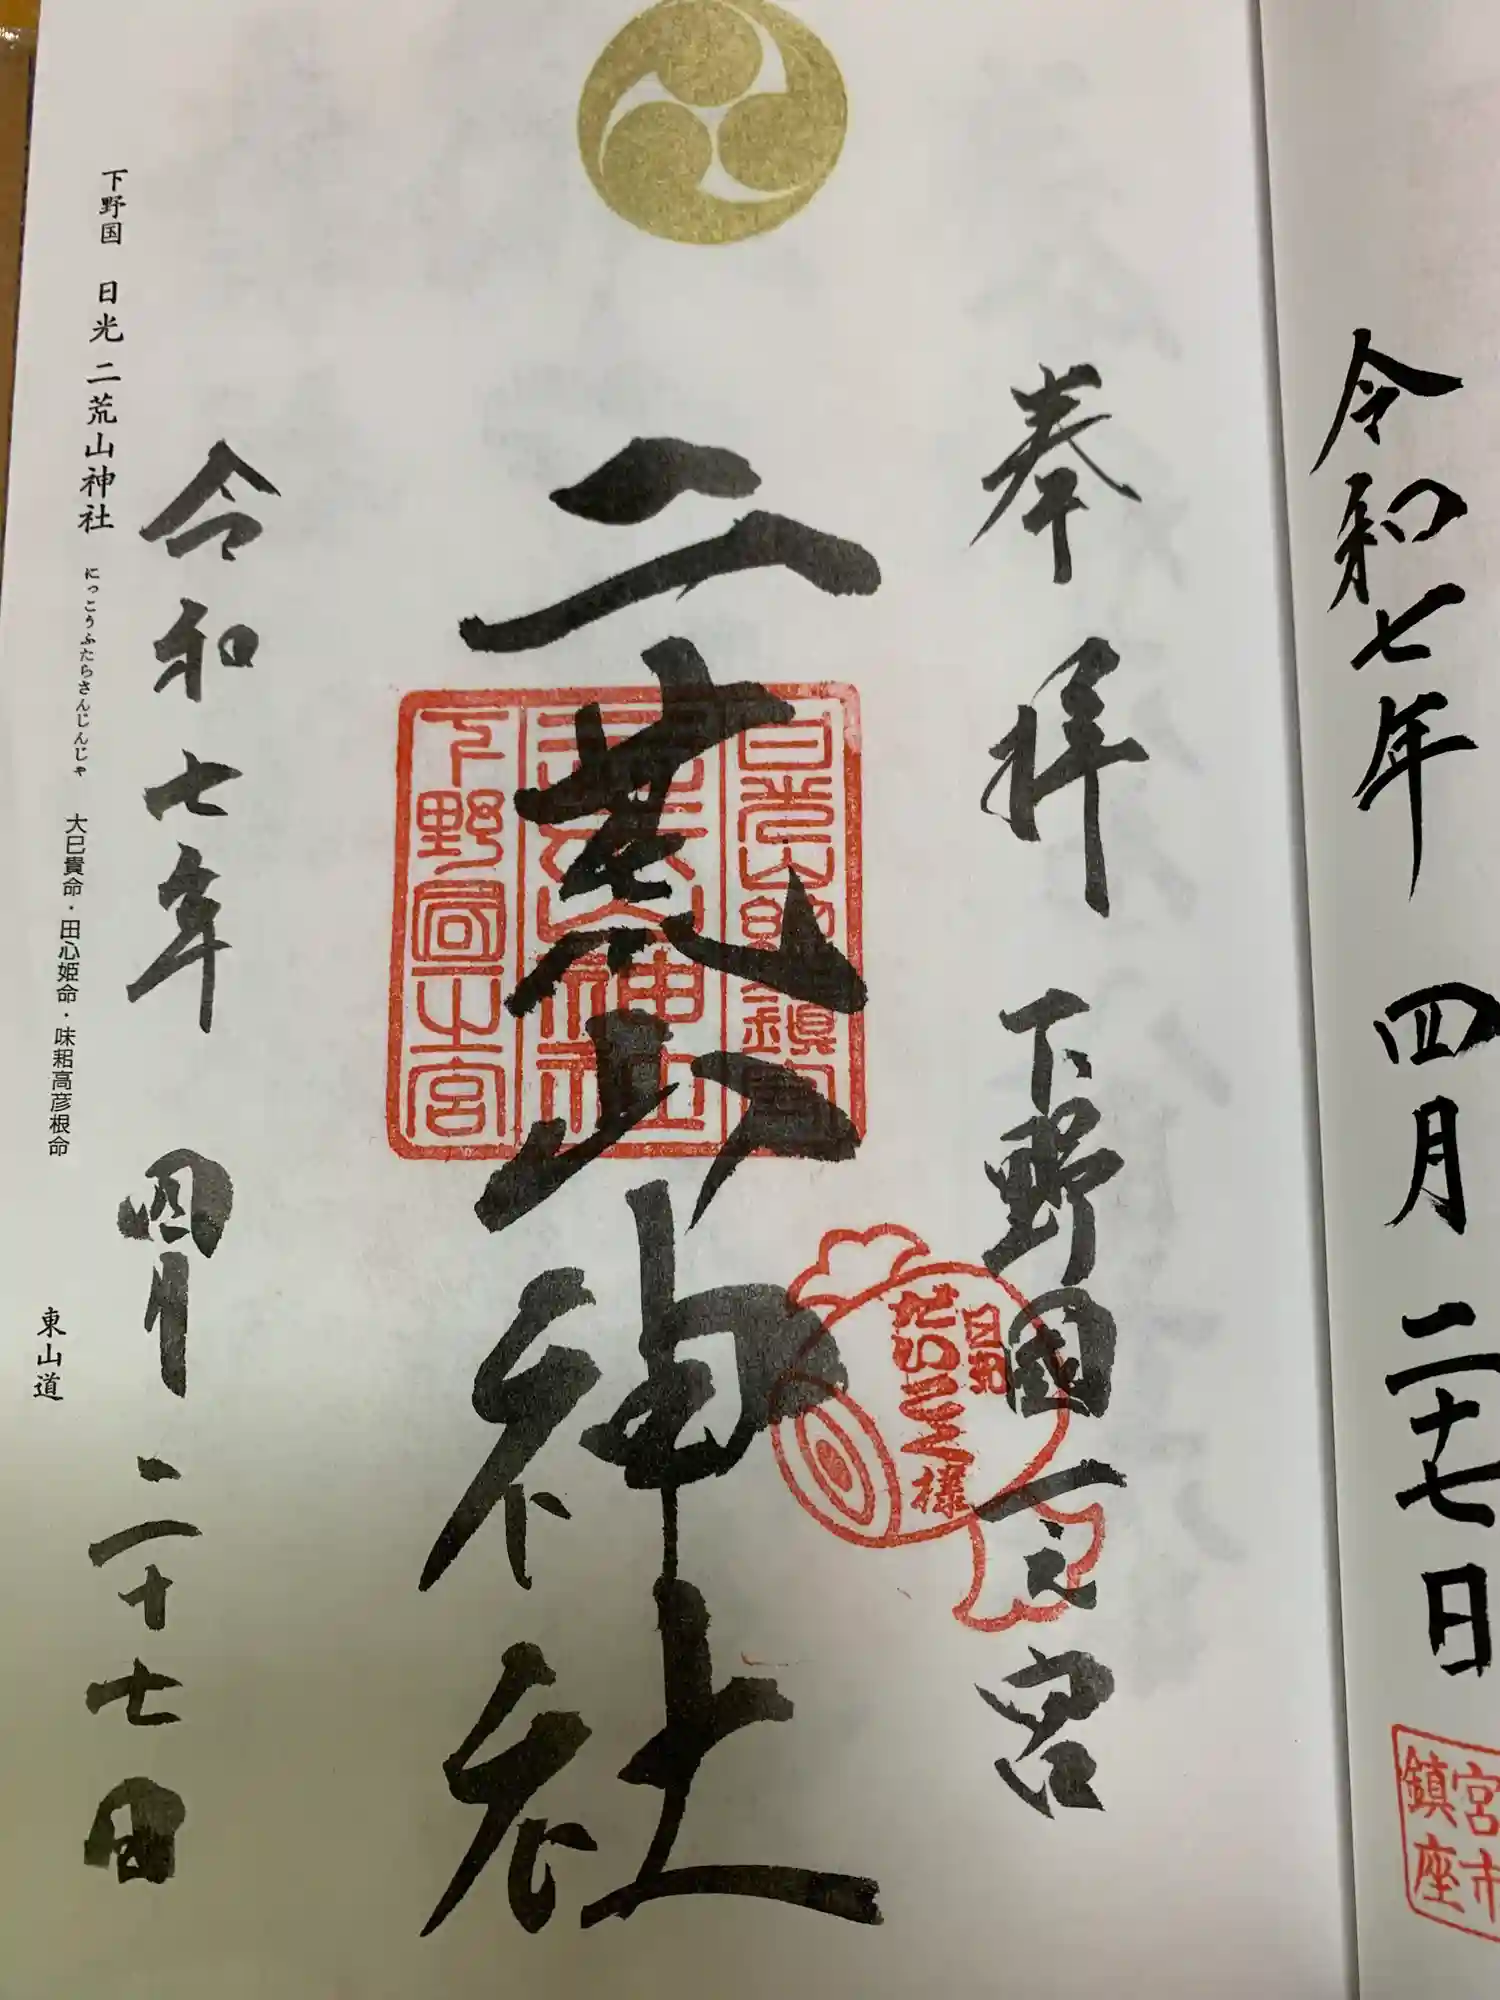 令和七年 四月 二十七日
宮市
鎮座
奉拝 下野國一之宮
日光
だいこく様
二荒山神社
日光山総鎮守
二荒山神社
下野國一宮
令和七年 四月 二十七日
下野国 日光 二荒山神社 にっこうふたらさんじんじゃ 大巳貴命・田心姫命・味耜高彦根命 東山道